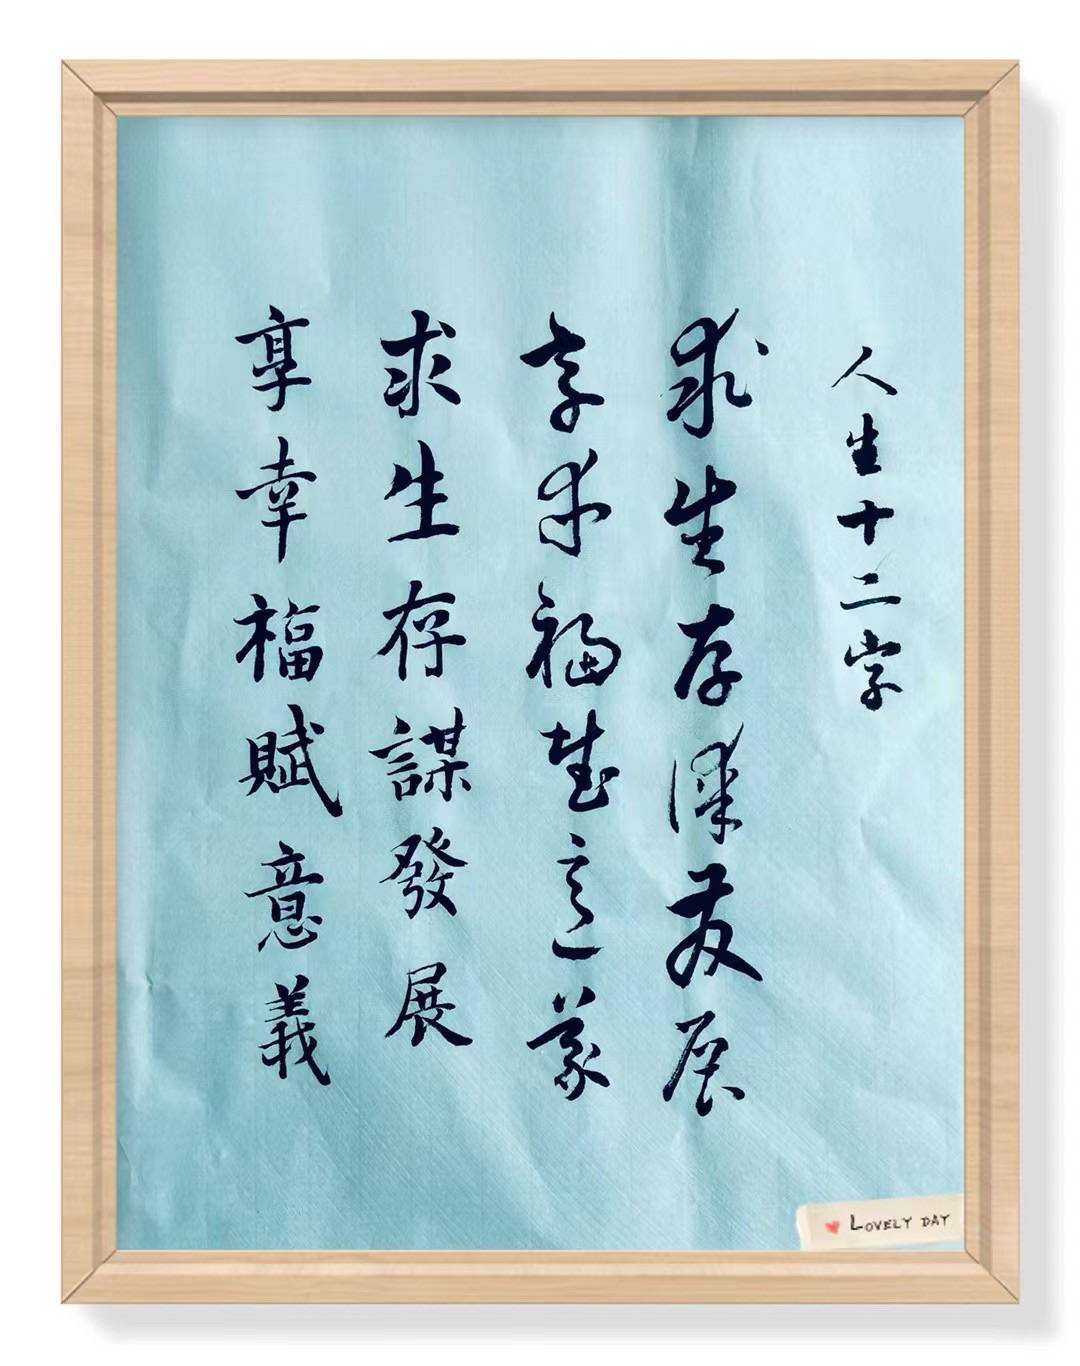 人生十二字
求生存谋发展
享幸福赋意义
求生存謀發展
享幸福賦意義
LOVELY DAY